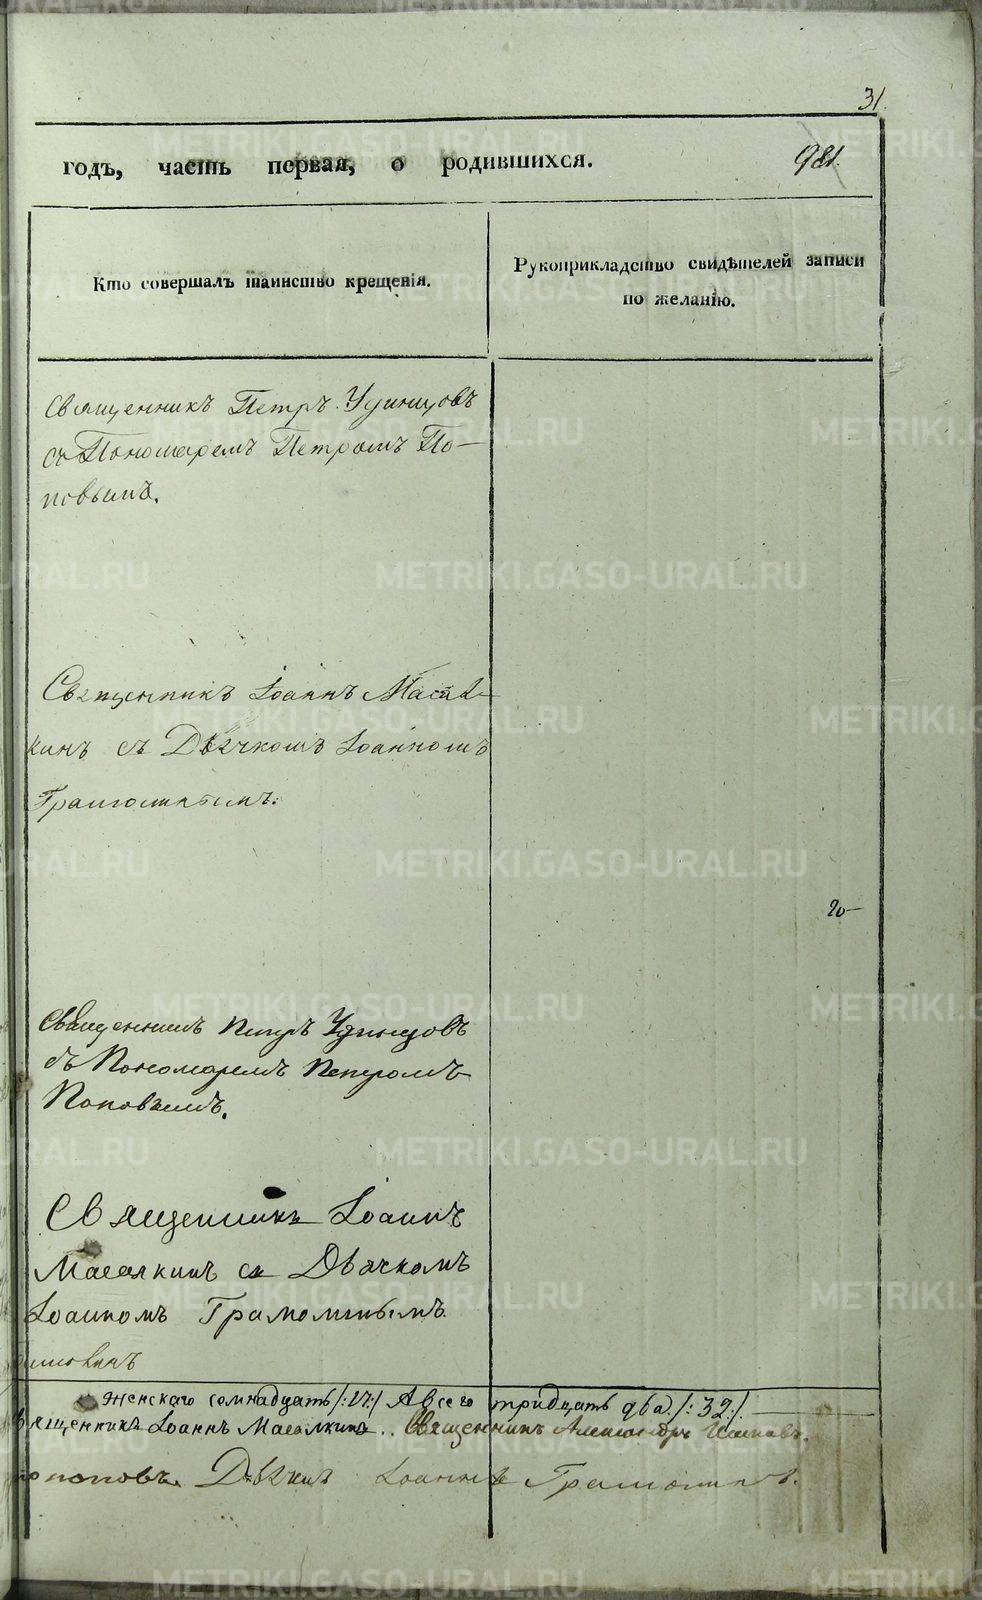 31.
981.
годъ, часть первая, о родившихся.
Кто совершалъ таинство крещенія.
Рукоприкладство свидѣтелей записи
по желанію.
Священникъ Петръ Удинцовъ
съ Пономаремъ Петромъ По-
повымъ.
Священникъ Іоаннъ Масал-
кинъ съ Дьячкомъ Іоанномъ
20-
Священникъ Петръ Удинцовъ
съ Пономаремъ Петромъ
Поповымъ.
Священникъ Іоаннъ
Масалкинъ съ Дьячкомъ
Іоанномъ
Женскаго семнадцать /:17:/ А всего тридцать два /:32:/
вященникъ Іоаннъ Масалкинъ.. Священникъ Александръ
Поповъ. Дьячкъ Іоаннъ
METRIKI.GASO-URAL.RU